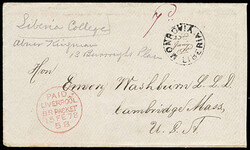 Siberia College
7d
Abner Kingman
13 Burroughs Place
MONROVIA LIBERIA
Hon
Emory Washburn L.L.D.
Cambridge Mass,
U.S.A
PAID
LIVERPOOL
BR PACKET
15 FE 78